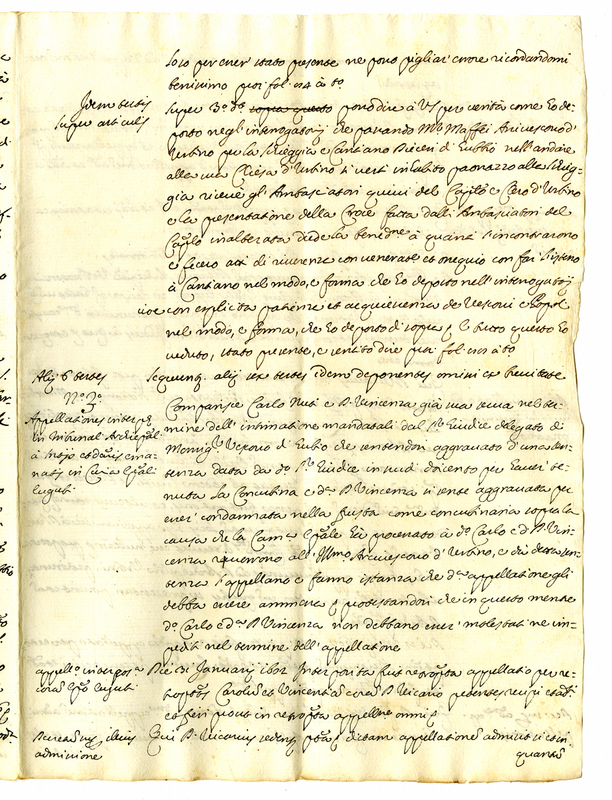 loro per esser stato presente ne posso pigliar errore ricordandomi
benissimo poi fol. 94 à t.º
Idem testis
super articulis
super 3.º d.º sopra questo posso dire à VS per verità come Io de-
posto negli interrogatorij che passando M.r Maffei Arcivescovo d'
Urbino per la Scheggia e Cantiano Diecesi di Eubbio nell'andare
alla sua Chiesa d'Urbino si vestì in habito paonazzo alla Scheg-
gia ricevè gli Ambasciatori quivi del Capitolo e Clero d'Urbino
e la presentatione della Croce fatta dalli Ambasciatori del
Cap.lo inalberata diede la bened.ne à quanti s'incontrarono
e fecero atti di riverenza con venerat.e et ossequio con far l'istesso
à Cantiano nel modo, e forma che Io deposto nell'interrogatorij
cioe con esplicita patienza et acquiescenza de Vescovi e Popoli
nel modo, e forma, che Io deposto di sopra e tutto questo Io
veduto, stato presente, e sentito dire poi fol. à t.º
Alij 6 testes
sequunt. alij sex testes idem deponentes omni ex
N.º 2.º
Appellationes interp.te
in Tribunali Archiep.ali
à
natis in Curia Ep.ali
Eugub.
Comparisce Carlo Nuti e D. Vincenza già sua serva nel ter-
mine dell'intimatione mandatali dal S.r Giudice delegato di
Monsig.r Vescovo di Eubio che sentendosi aggravato d'una sen-
tenza data da d.º S.r Giudice in scudi doicento per haver te-
nuta la Concubina e d.ª D. Vincenza si sente aggravata per
esser condannata nella frusta come concubinaria sopra la
causa che la Cam.ª Ep.ale hà processato à d.º Carlo e d.ª D. Vin-
cenza ricorrono all'Ill.mo Arcivescovo d'Urbino, e di detta sen-
tenza s'appellano e fanno istanza che d.ª appellatione gli
debba essere ammessa protestandosi che in questo mentre
d.º Carlo e d.ª D. Vincenza non debbano esser molestati ne im-
pediti nel termine dell'appellatione
appell.º interposita
coram Ep.o Eugub.
Die 31 Januarij 1602 Interposita fuit retros.pta appellatio per re-
tros.ptos Carolum et Vincentiam coram D. Vicario petentes recipi et admitti
et fieri prout in retros.pta appell.ne omni
Decretum illius
admissione
Qui D. Vicarius sedens p.tam dictam appellationem admisit si et in
quantum